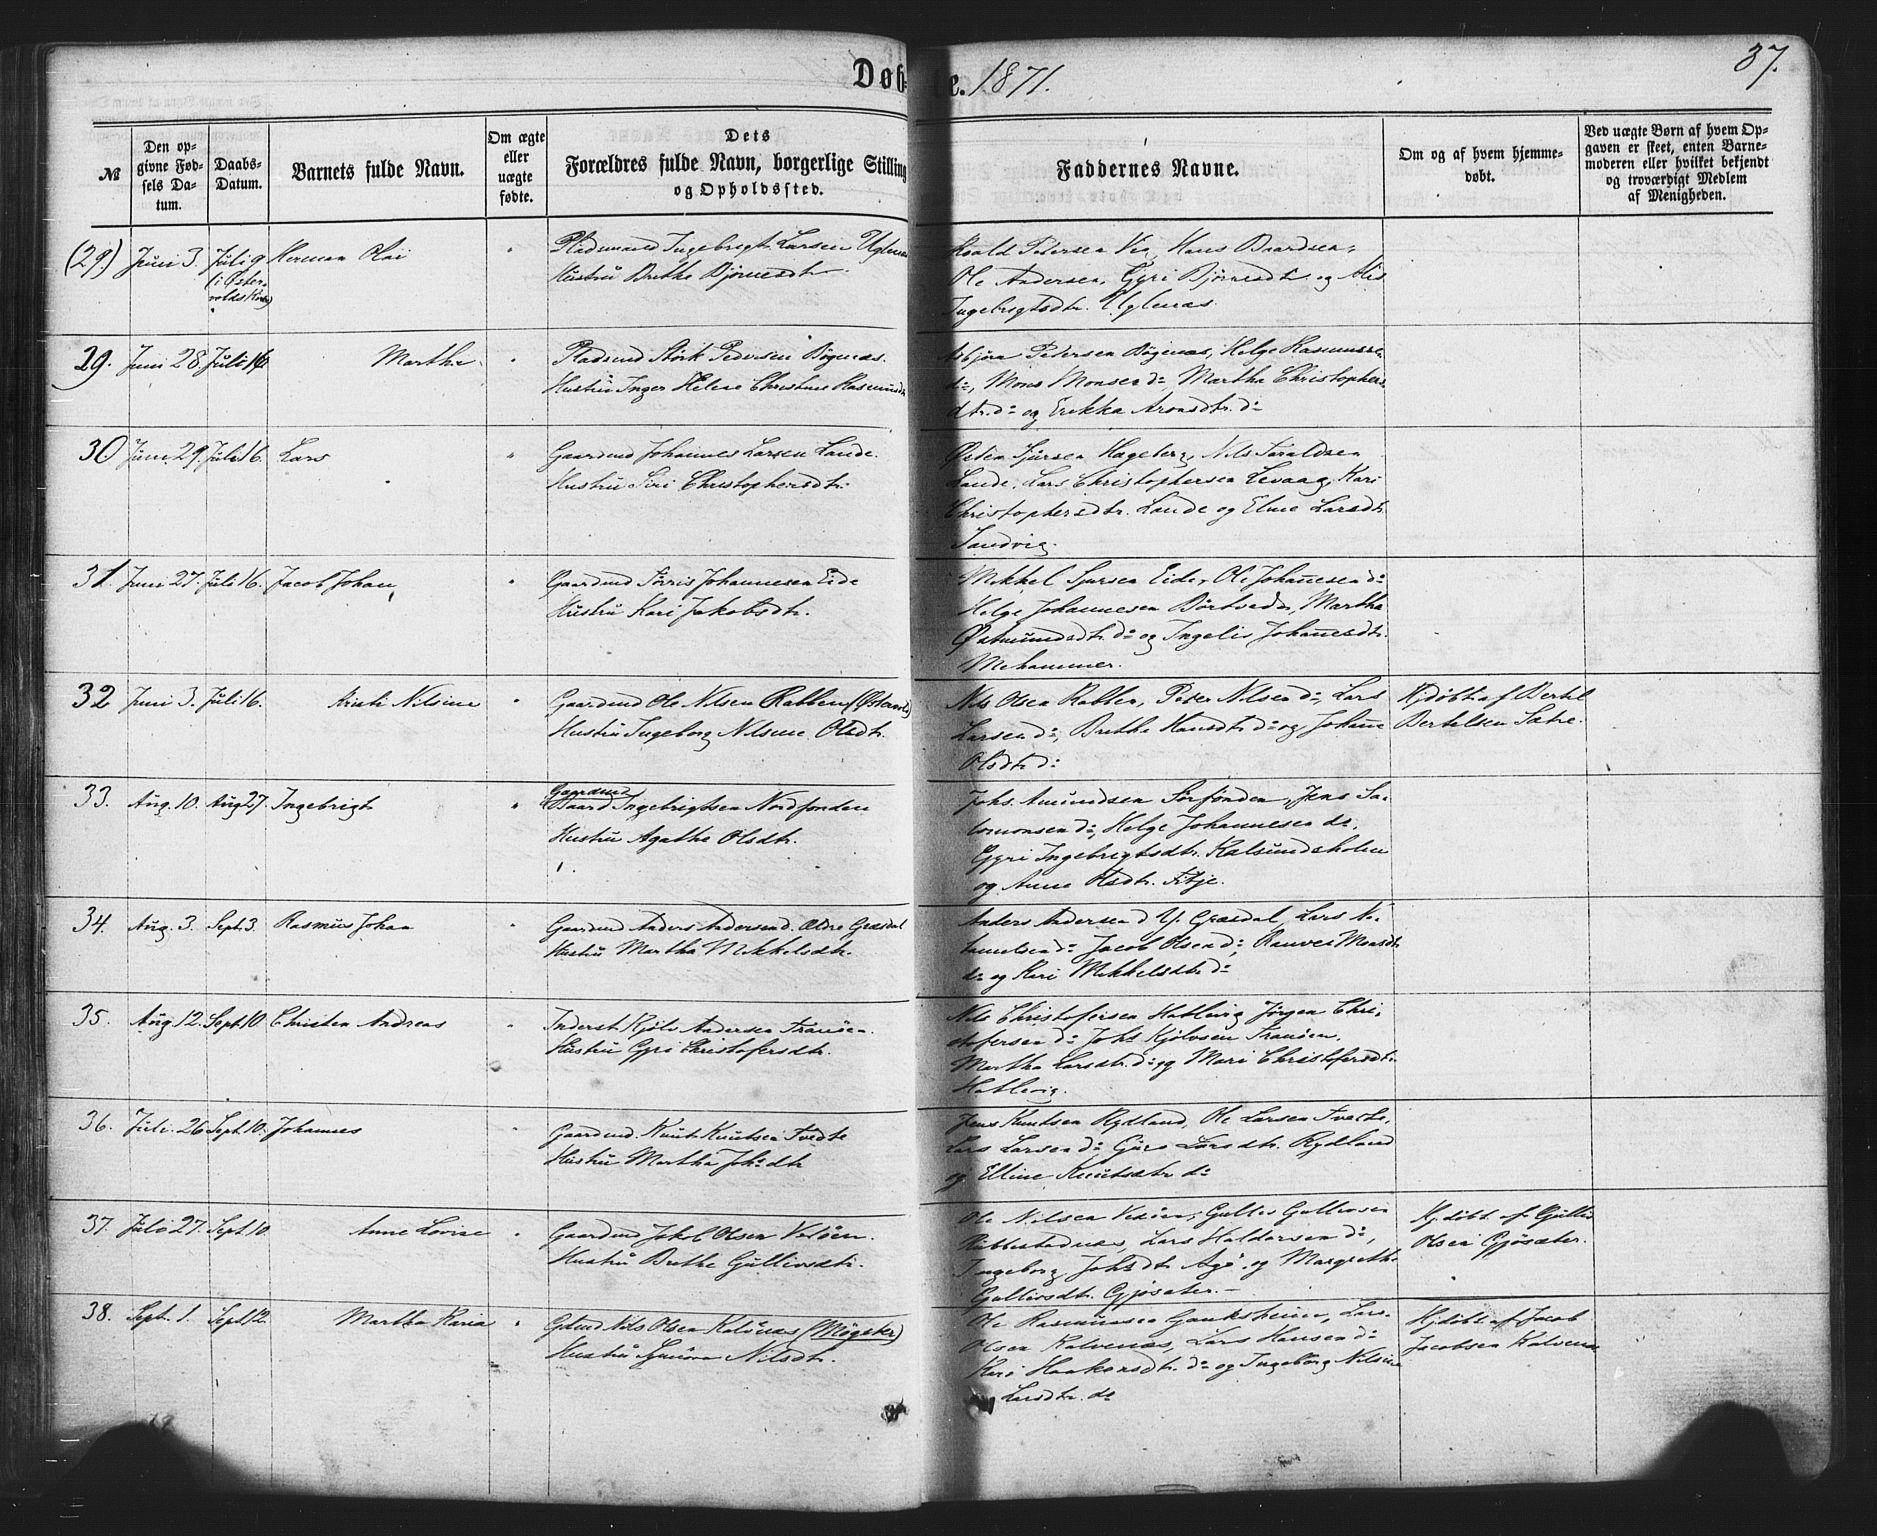 Døbte. 1871.
37.
№
Den opgivne Fødsels Datum.
Daabs-Datum.
Barnets fulde Navn.
Om ægte eller uægte fødte.
Dets Forældres fulde Navn, borgerlige Stilling og Opholdssted.
Faddernes Navne.
Om og af hvem hjemmedøbt.
Ved uægte Børn af hvem Opgaven er skeet, enten Barnemoderen eller hvilket bekjendt og troværdigt Medlem af Menigheden.
(29.) Juni 3. Juli 9 (i Østervolds Kirke) Herman " Pladsmand Ingebrigt Larsen Uglenæs
Hustru Brithe Bjørnesdtr.
Roald Petersen Vig, Hans Baardsen,
Ole Andersen, Gyri Bjørnesdtr og
Ingebrigtsdtr. Uglenæs.
29. Juni 28. Juli 16 Martha " Pladsmd Størk Pedersen Bøgenæs.
Hustru Inger Helene Christine Rasmusdtr
Asbjørn Petersen Bøgenæs, Helge Rasmussen
do, Mons Monsen do, Martha Christophers
dtr. do og Erikka Aronsdtr. do
30 Juni 29. Juli 16. Lars " Gaardmd Johannes Larsen Lande.
Hustru Siri Christophersdtr.
Østen Sjursen Hageberg, Nils Taraldsen
Lande, Lars Christophersen Levaag, Kari
Christophersdtr. Lande og Eline Larsdtr.
Sandvig.
31. Juni 27. Juli 16. Jacob Johan " Gaardmd Torris Johannesen Eide
Hustru Kari Jakobsdtr.
Mikkel Sjursen Eide, Ole Johannesen do
Helge Johannesen Børtved, Martha
Østmundsdtr. do og Ingelis Johannesdtr.
Mehammer.
32 Juni 3. Juli 16. Kristi Nilsine " Gaardmd Ole Nilsen Rabben (Østervold)
Hustru Ingeborg Nilsine Olsdtr.
Nils Olsen Rabben, Peter Nilsen do, Lars
Larsen do, Brithe Hansdtr. do og Johanne
Olsdtr. do
Hjdøbt af Bertel
Bertelsen Sætre.
33. Aug. 10. Aug 27. Ingebrigt " Gaardmd
Baard Ingebrigtsen Nordfonden
Hustru Agathe Olsdtr.
Johs. Amundsen Sørfonden, Jens Sa-
lomonsen do, Helge Johannesen do,
Gyri Ingebrigtsdtr. Kalsundsholm
og Anne Olsdtr. Fitje.
34. Aug. 3. Sept 3. Rasmus Johan " Gaardmd Anders Andersen d. Ældre Græsdal
Hustru Martha Mikkelsdtr.
Anders Andersen d. Y. Græsdal, Lars Na-
tanielsen do Jacob Olsen do, Monsdtr
do og Kari Mikkelsdtr. do
35. Aug 12. Sept 10 Christen Andreas " Inderst Kjølv Andersen Tranøen.
Hustru Gyri Christofersdtr.
Nils Christofersen Hatlevig, Jørgen Chri-
stofersen do Johs Kjølvsen Tranøen,
Martha Larsdtr. do og Mari Christofersdtr.
Hatlevig.
36. Juli 26 Sept. 10. Johannes " Gaardmd Knut Knutsen Tvedte
Hustru Martha Johsdtr
Jens Knutsen Rydland, Ole Larsen Tvedte,
Lars Larsen do Guro Larsdtr. Rydland
og Elline Knutsdtr do
37. Juli 27. Sept. 10. Anne Lovise " Gaardmd Jakob Olsen Vedøen.
Hustru Brithe Gullivsdtr.
Ole Nilsen Vedøen, Gulleif Gullivsen
Ribbestadnæs, Lars Haldorsen do,
Ingeborg Johsdtr Agø og Margrethe
Gullivsdtr. Gjøsæter.
Hjdøbt. af Gulliv
Olsen Gjøsæter.
38. Sept. 1. Sept 12. Martha Karia " Gdmd Nils Olsen Kalvenæs (Møgster)
Hustru Synnøva Nilsdtr.
Ole Rasmussen Gauksheim, Lars
Olsen Kalvenæs, Lars Hansen do
Kari Haakonsdtr. do og Ingeborg Nilsine
Larsdtr. do
Hjdøbt af Jacob
Jacobsen Kalvenæs